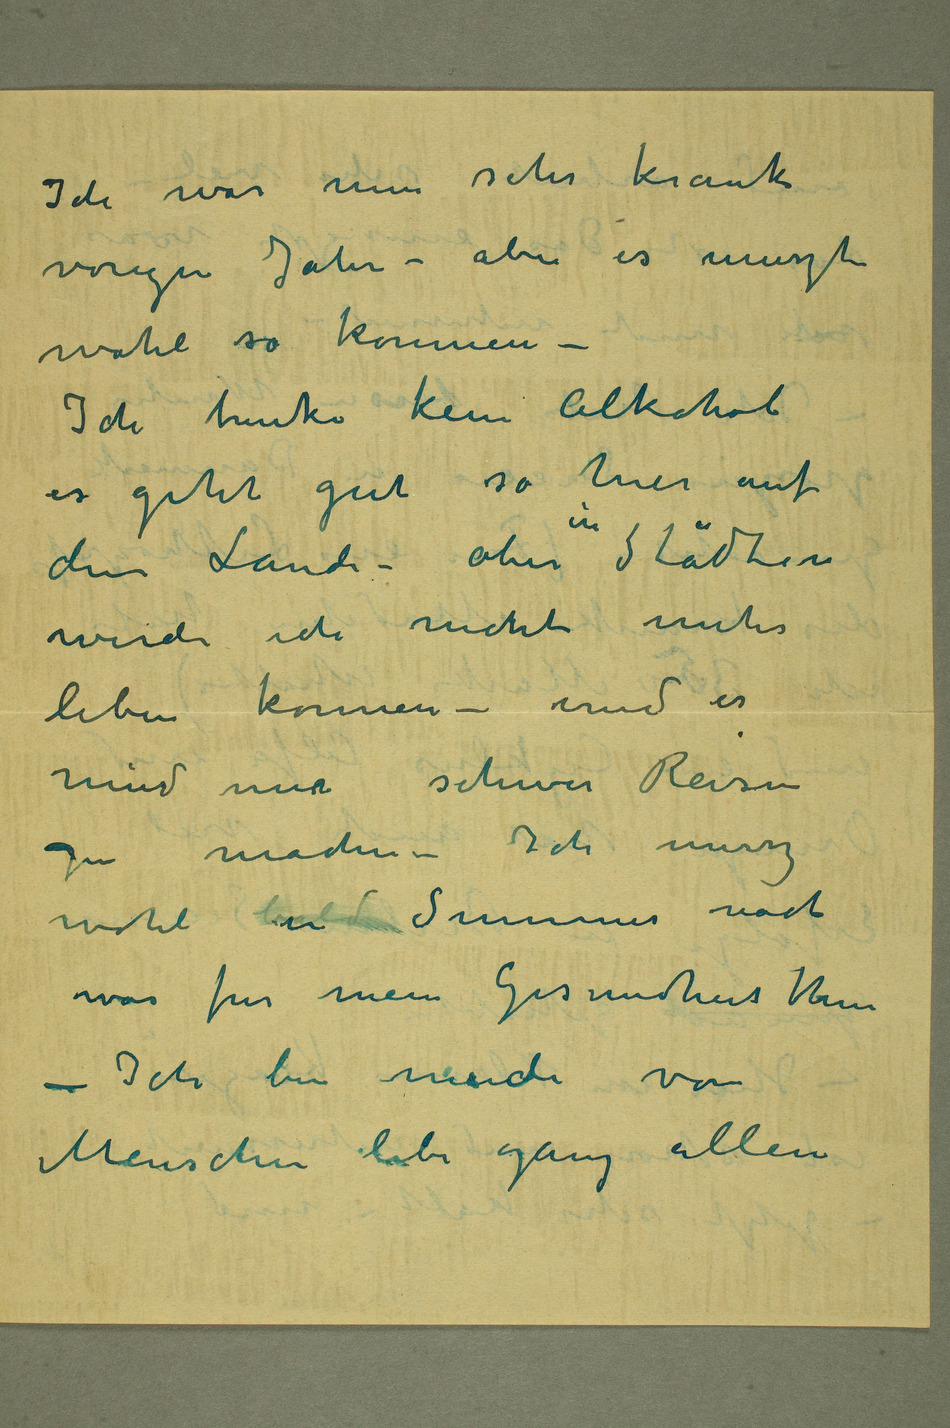 Ich war nun sehr krank
vorigen Jahr – aber es muszte
wohl so kommen –
Ich trinke kein Alkohol
es geht gut so hier auf
dem Lande – aber in Städten
werde ich nicht mehr
leben konnen – und es
wird mir schwer Reisen
zu machen – Ich musz
wohl in Summer nach
was fur mein Gesundheit thun
– Ich bin mude von
Menschen lebe ganz allein